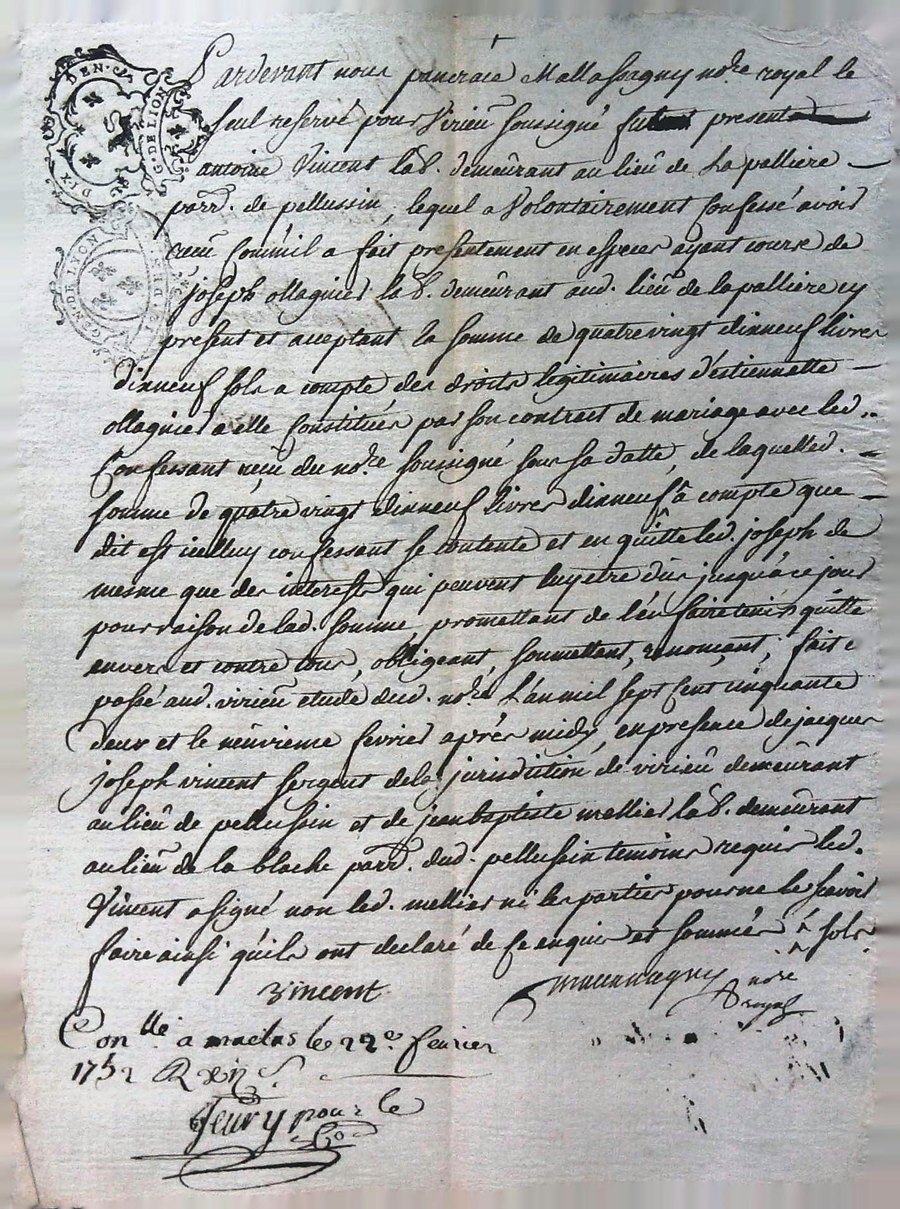 DIX DEN.
G. DE LION
GEN. DE LYON
Pardevant nous pancrace Mallassagny no.re royal le
seul reservé pour Virieü soussigné fut present
antoine Vincent lab. demeûrant au lieû de La palliere
parr. de pellussin, lequel a Volontairement Confessé avoir
receu Comm'il a fait presentement en especes ayant course de
joseph ollagnier lab. demeûrant aud. lieû de la palliere cy
present et acceptant la somme de quatre vingt dixneuf livres
dixneuf sols a compte des droits legitimaires d'estiennette
ollagnier a elle Constitués par son contract de mariage avec led.
Confessant reçu du no.re soussigné sous sa datte, de laquelle d.
somme de quatre vingt dixneuf livres dixneuf à compte que
dit est icelluy confessant se contente et en quitte led. joseph de
mesme que des interests qui peuvent luy etre dus jusqu'à ce jour
pour raison de lad. somme, promettant de l'en faire tenir quitte
envers et contre tous, obligeant, soumettant, renonçant, fait e
passé aud. virieü etude dud. no.re L'an mil sept Cent cinquante
deux et le neuvieme fevrier après midy, en presence de jacques
joseph vincent sergent de la jurisdiction de virieü demeûrant
au lieû de pellussin et de jean baptiste mellier lab. demeûrant
au lieû de la blache parr. dud. pellussin temoins requis led.
Vincent a signé non led. mellier ni les parties pour ne le scavoir
faire ainsi qu'ils ont declaré de ce enquis et sommés sols
Vincent
no.re
royal
Con.llé a maclas le 22e fevrier
1752 R
fleury pour le